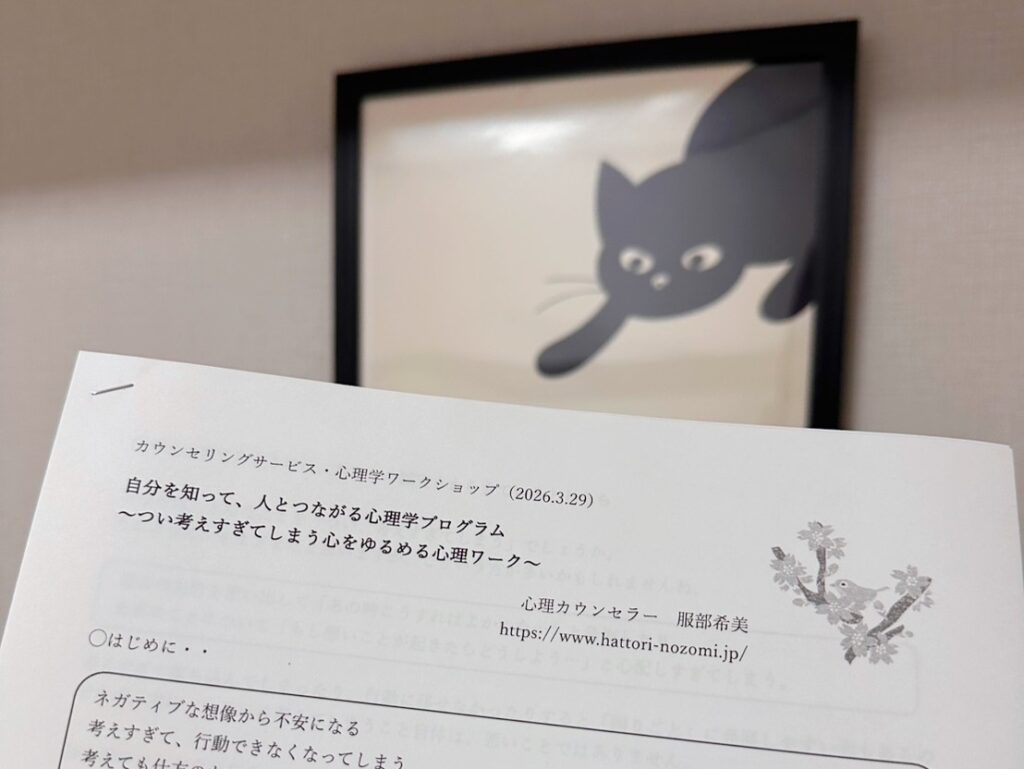 カウンセリングサービス・心理学ワークショップ（2026.3.29）
自分を知って、人とつながる心理学プログラム
～つい考えすぎてしまう心をゆるめる心理ワーク～
心理カウンセラー　服部希美
https://www.hattori-nozomi.jp/
○はじめに・・
ネガティブな想像から不安になる
考えすぎて、行動できなくなってしまう
考えても仕方の